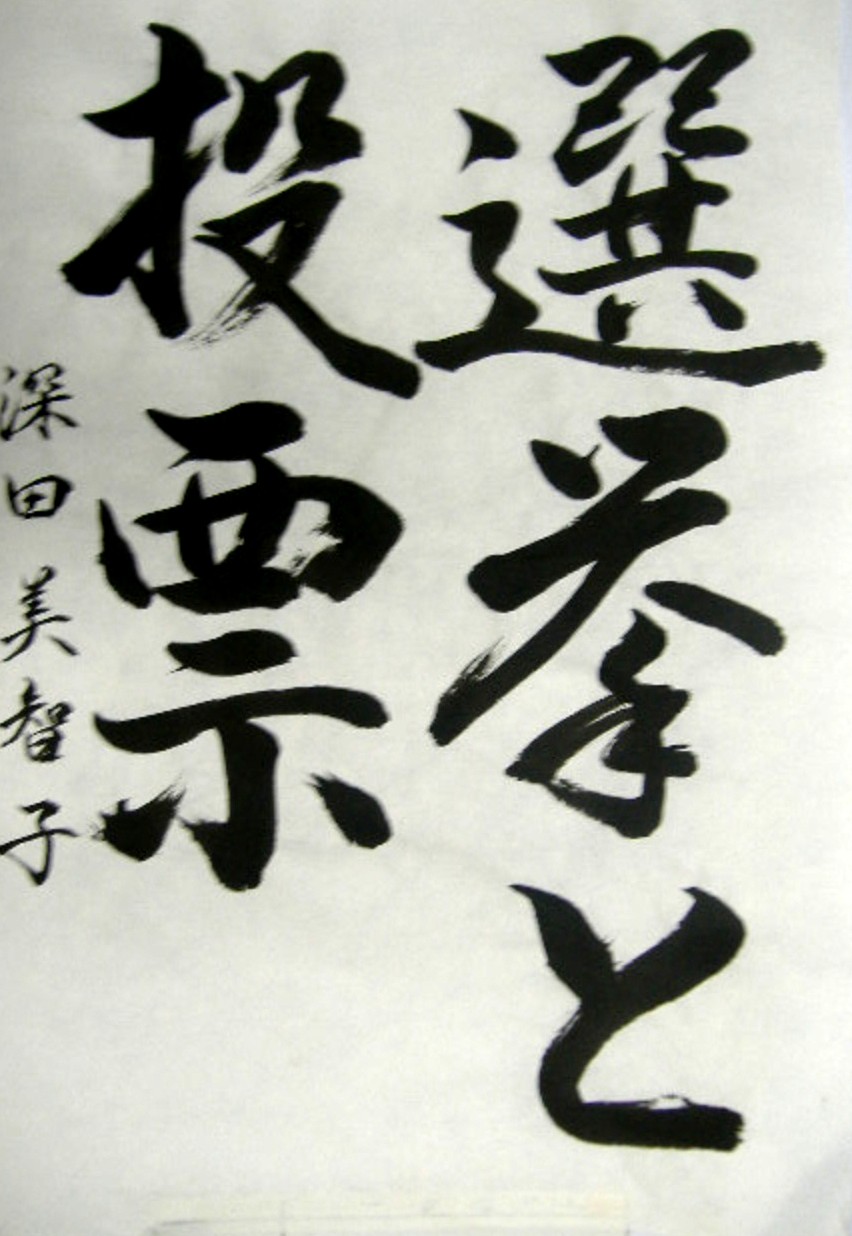 選挙と
投票
深田美智子